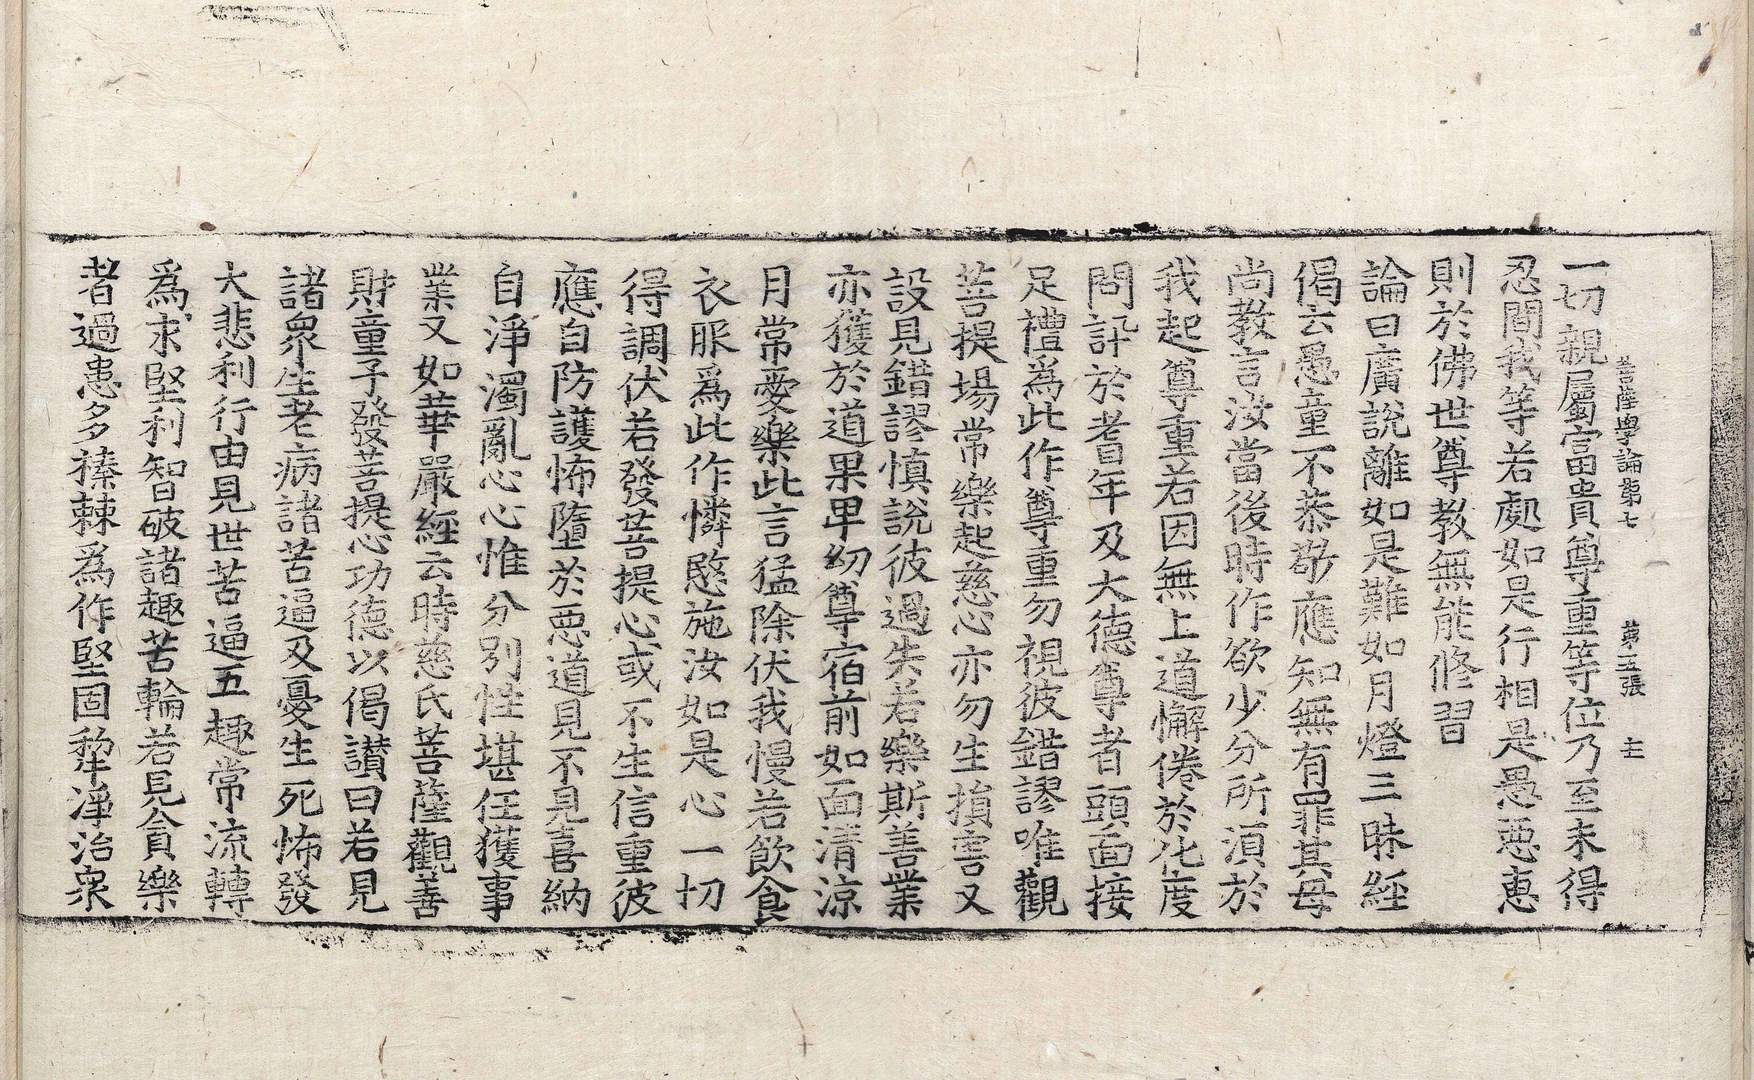 菩薩學論第七　第五張　主
一切親屬富貴尊重等位乃至未得
忍間我等若處如是行相是愚惡恵
則於佛世尊教無能修習
論曰廣說離如是難如月燈三昧經
偈云愚童不恭敬應知無有罪其母
尚教言汝當後時作欲少分所湏於
我起尊重若因無上道懈倦於化度
問訊於耆年及大德尊者頭面接
足禮爲此作尊重勿視彼錯謬唯觀
菩提場常樂起慈心亦勿生損害又
設見錯謬慎說彼過失若樂斯善業
亦獲於道果卑幼尊宿前如面清涼
月常愛樂此言猛除伏我慢若飲食
衣服爲此作憐愍施汝如是心一切
得調伏若發菩提心或不生信重彼
應自防護怖墮於惡道見不見喜納
自淨濁亂心心惟分別性堪任獲事
業又如華嚴經云時慈氏菩薩觀善
財童子發菩提心功德以偈讃曰若見
諸衆生老病諸苦逼及憂生死怖發
大悲利行由見世苦逼五趣常流轉
爲求堅利智破諸趣苦輪若見貪樂
者過患多榛棘爲作堅固犂淨治衆